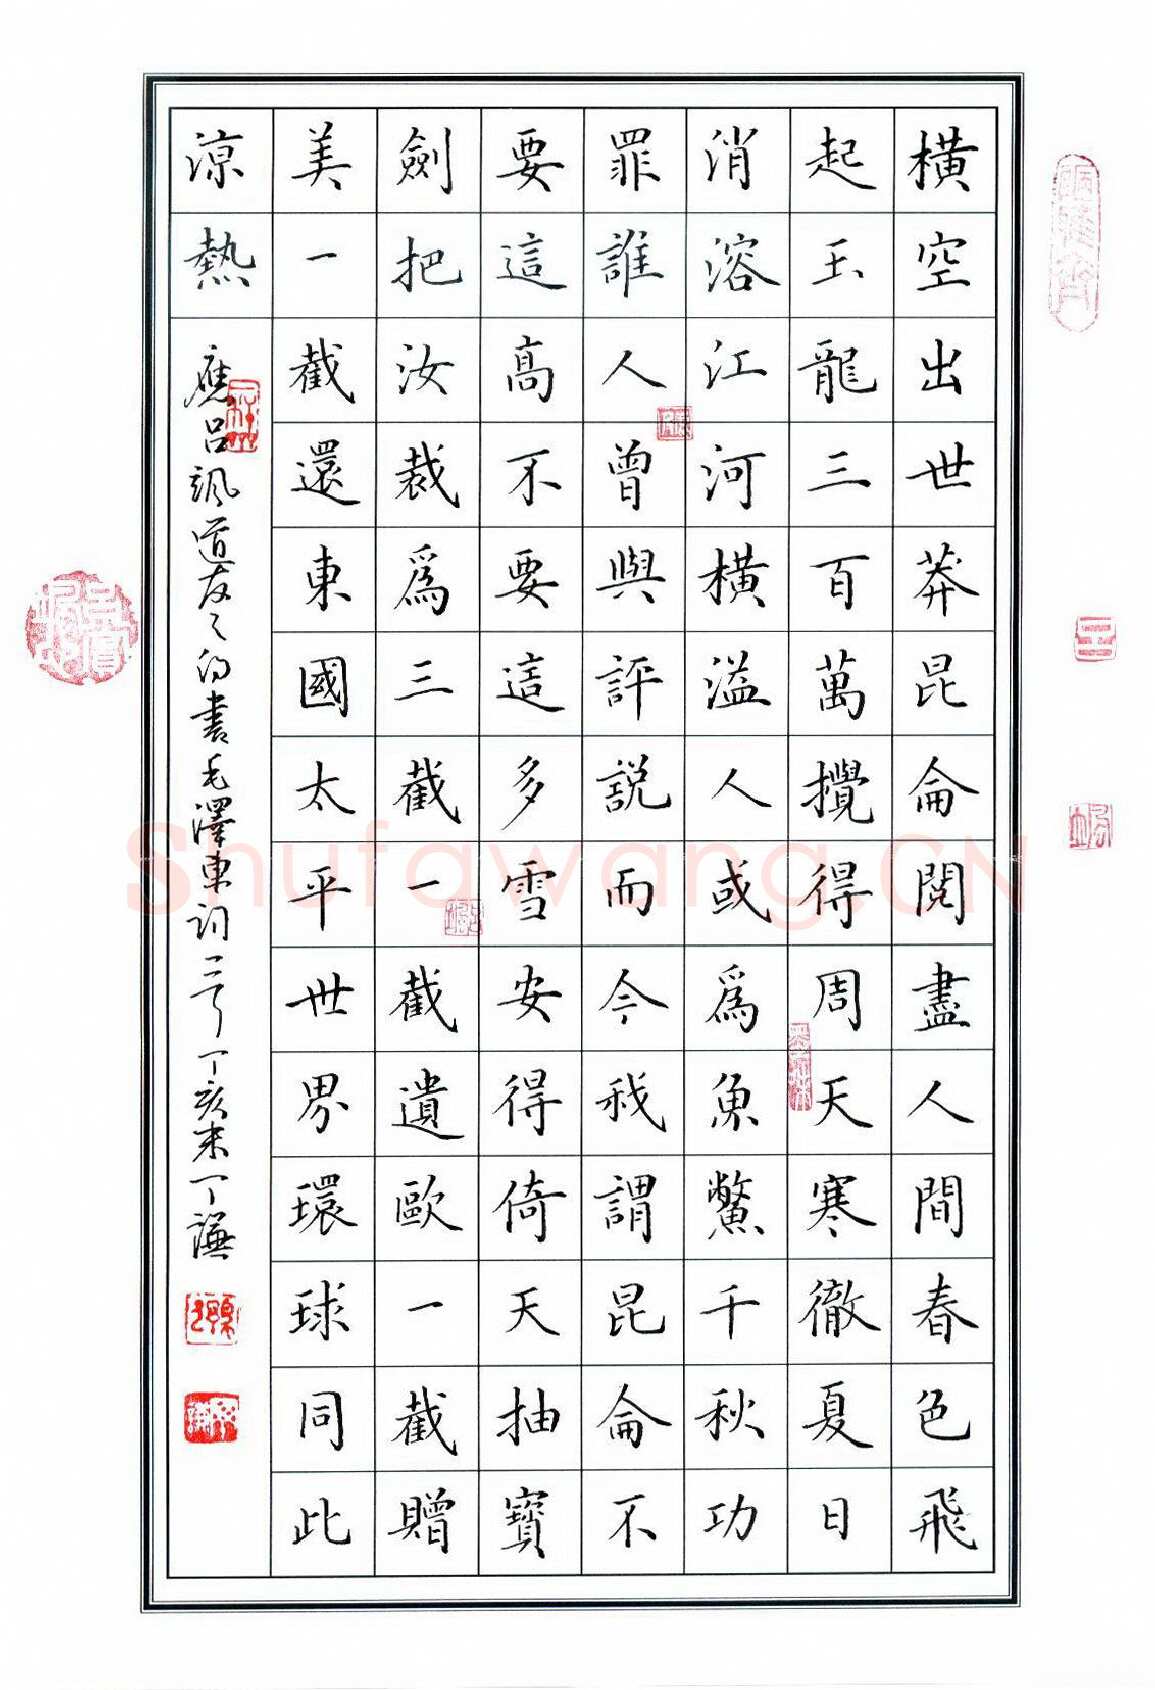 橫空出世莽昆侖閱盡人間春色飛
起玉龍三百萬攪得周天寒徹夏日
消溶江河橫溢人或爲魚鱉千秋功
罪誰人曾與評說而今我謂昆侖不
要這高不要這多雪安得倚天抽寶
劍把汝裁爲三截一截遺歐一截贈
美一截還東國太平世界環球同此
涼熱
應呂颯道友之書毛澤東詞丁亥末丁謙
Shufawang.CN